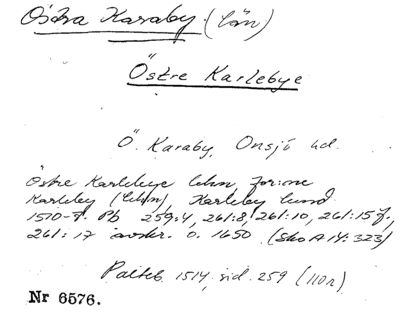 Östra Karaby (län)
Östre Karlebye
Ö. Karaby, Onsjö hd.
Östre Karlebye lehn, forne
Karleby (lehn), Karleby lund
1510-t. Pb 259:4, 261:8, 261:10, 261:15 f.,
261:17 avskr. ö. 1650 (Sko A 14:323)
Palteb. 1514, sid. 259 (110r)
Nr 6576.